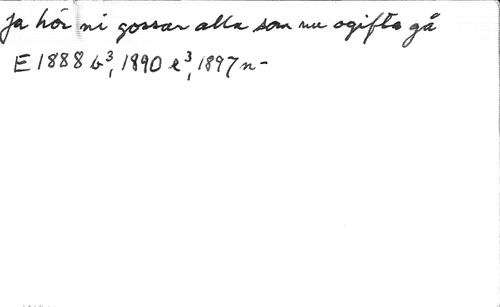 Ja hör ni gossar alla som nu ogifta gå
E 1888 b³, 1890 e³, 1897 n-